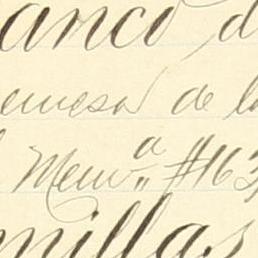 anco d
emesa de la
Memª. #163
millas